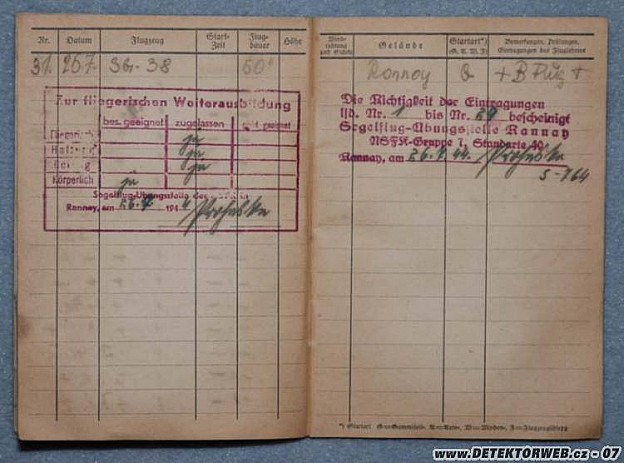 Nr. Datum Flugzeug Start-Zeit Flug-dauer Höhe
31. 26.7. SG-38 60"
Zur fliegerischen Weiterausbildung
bes. geeignet zugelassen nicht geeignet
Körperlich
Segelflug-Übungsstelle des
Rannay, am 26.7. 194
Wind-richtung und Stärke Gelände Startart*) (G. A. W. F.) Bemerkungen, Prüfungen, Eintragungen des Fluglehrers
Rannay G +B Prüfg +
Die Richtigkeit der Eintragungen
lfd. Nr. 1 bis Nr. 29 bescheinigt
Segelflug-Übungsstelle Rannay
NSFK-Gruppe 7, Standarte 40
Rannay, am 26.7.44.
S-764
*) Startart
www.DETEKTORWEB.cz - 07